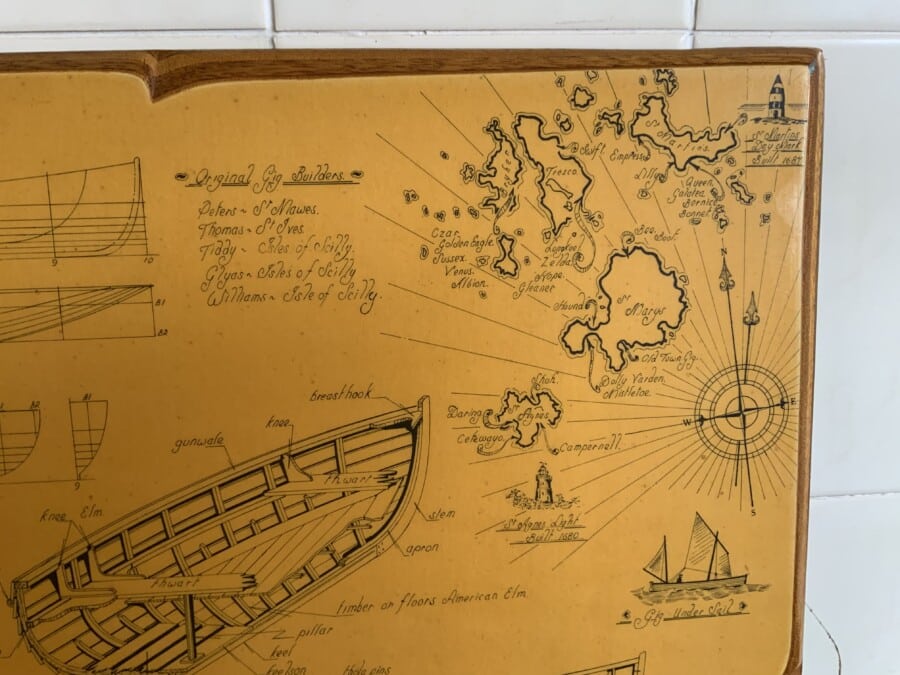 Original Gig Builders.
Peters ~ St Mawes.
Thomas ~ St Ives.
Tiddy ~ Isles of Scilly.
Glyas ~ Isles of Scilly
Williams ~ Isle of Scilly.
9
10
B1
B2
B2
9
9
St Martins
Day Mark
Built 1687
St Martins.
Swift.
Empress
Lilly
Queen
Galatea
Bernice
Bonnet.
Tresco.
Czar
Golden Eagle.
Sussex.
Venus.
Albion.
Zelda.
Hope.
Gleaner
Bee.
Boot.
Hound
St Marys
Old Town Gig.
Dolly Varden.
Mistletoe.
N
E
W
S
Shah.
Daring
St Agnes
Cetewayo.
Campernell.
St Agnes Light
Built 1680
Gig Under Sail
breasthook
knee
gunwale
thwart
knee Elm.
stem
apron
thwart
timber or floors American Elm.
pillar
keel
keelson
thole pins